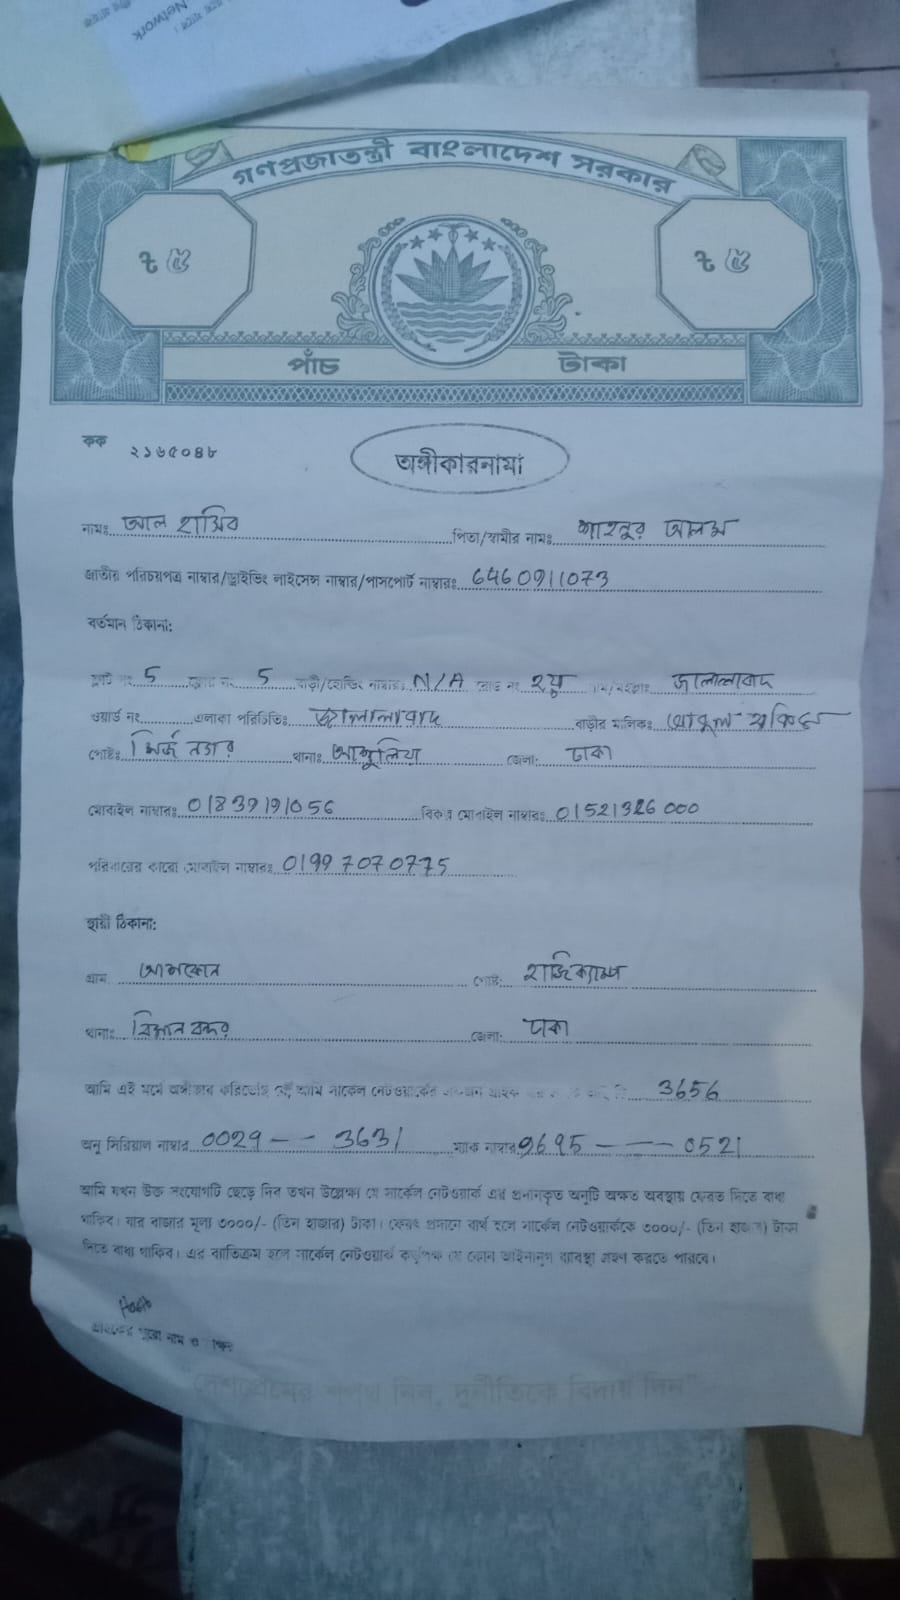 Network
গণপ্রজাতন্ত্রী বাংলাদেশ সরকার
৳ ৫ ৳ ৫
পাঁচ টাকা
কক ২১৬৫০৪৮
অঙ্গীকারনামা
নামঃ আল হাসিব পিতা/স্বামীর নামঃ শাহনুর আলম
জাতীয় পরিচয়পত্র নাম্বার/ড্রাইভিং লাইসেন্স নাম্বার/পাসপোর্ট নাম্বারঃ 6460911073
বর্তমান ঠিকানা:
5 নং 5 বাড়ী/হোল্ডিং নাম্বারঃ N/A রোড নং ২য় জালালাবাদ
ওয়ার্ড নং এলাকা পরিচিতিঃ জালালাবাদ বাড়ীর মালিকঃ
পোষ্টঃ মির্জানগর থানাঃ আশুলিয়া জেলা: ঢাকা
মোবাইল নাম্বারঃ 01839191056 বিকল্প মোবাইল নাম্বারঃ 01521326000
পরিবারের কারো মোবাইল নাম্বারঃ 01997070775
স্থায়ী ঠিকানা:
গ্রাম আশকোনা পোষ্ট: হাজিক্যাম্প
থানাঃ বিমান বন্দর জেলা: ঢাকা
আমি এই মর্মে অঙ্গীকার করিতেছি যে, আমি সার্কেল নেটওয়ার্কের 3656
অনু সিরিয়াল নাম্বার 0029-- 3631 ম্যাক নাম্বার 9695 -—— 0521
আমি যখন উক্ত সংযোগটি ছেড়ে দিব তখন উল্লেক্ষা যে সার্কেল নেটওয়ার্ক এর প্রদানকৃত অনুটি অক্ষত অবস্থায় ফেরত দিতে বাধ্য
থাকিব। যার বাজার মূল্য ৩০০০/- (তিন হাজার) টাকা। ফেরৎ প্রদানে ব্যর্থ হলে সার্কেল নেটওয়ার্ককে ৩০০০/- (তিন হাজার) টাকা
দিতে বাধ্য থাকিব। এর ব্যতিক্রম হলে সার্কেল নেটওয়ার্ক কর্তৃপক্ষ যে কোন আইনানুগ ব্যবস্থা গ্রহণ করতে পারবে।
Hasib
গ্রাহকের পুরো নাম ও
দেশপ্রেমের শপথ নিন, দুর্নীতিকে বিদায় দিন"